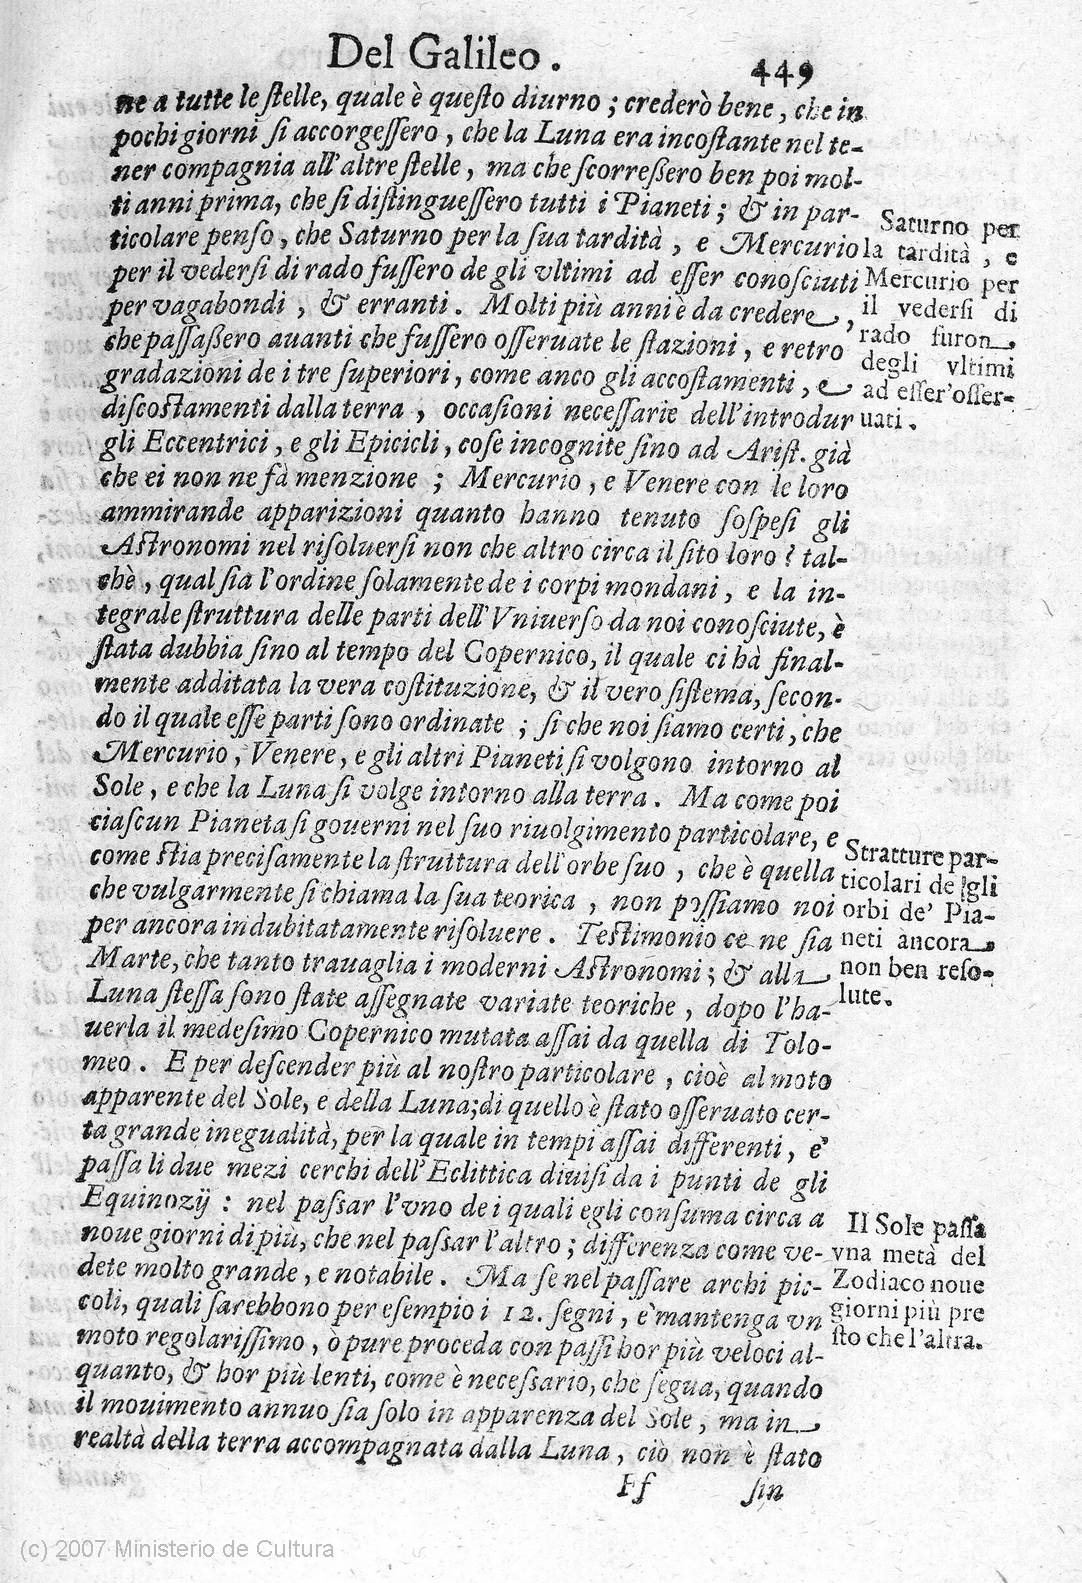 Del Galileo.
449
ne a tutte le ſtelle, quale è queſto diurno; crederò bene, che in
pochi giorni ſi accorgeſſero, che la Luna era incoſtante nel te-
ner compagnia all'altre ſtelle, ma che ſcorreſſero ben poi mol-
ti anni prima, che ſi diſtingueſſero tutti i Pianeti; & in par-
ticolare penſo, che Saturno per la ſua tardità, e Mercurio
per il vederſi di rado fuſſero de gli vltimi ad eſſer conoſciuti
per vagabondi, & erranti. Molti più anni è da credere,
che paſſaſſero auanti che fuſſero oſſeruate le ſtazioni, e retro
gradazioni de i tre ſuperiori, come anco gli accoſtamenti, e
diſcoſtamenti dalla terra, occaſioni neceſſarie dell'introdur
gli Eccentrici, e gli Epicicli, coſe incognite ſino ad Ariſt. già
che ei non ne fà menzione; Mercurio, e Venere con le loro
ammirande apparizioni quanto hanno tenuto ſoſpeſi gli
Aſtronomi nel riſoluerſi non che altro circa il ſito loro? tal-
chè, qual ſia l'ordine ſolamente de i corpi mondani, e la in-
tegrale ſtruttura delle parti dell'Vniuerſo da noi conoſciute, è
ſtata dubbia ſino al tempo del Copernico, il quale ci hà final-
mente additata la vera coſtituzione, & il vero ſiſtema, ſecon-
do il quale eſſe parti ſono ordinate; ſi che noi ſiamo certi, che
Mercurio, Venere, e gli altri Pianeti ſi volgono intorno al
Sole, e che la Luna ſi volge intorno alla terra. Ma come poi
ciaſcun Pianeta ſi gouerni nel ſuo riuolgimento particolare, e
come ſtia preciſamente la ſtruttura dell'orbe ſuo, che è quella
che vulgarmente ſi chiama la ſua teorica, non poſſiamo noi
per ancora indubitatamente riſoluere. Teſtimonio ce ne ſia
Marte, che tanto trauaglia i moderni Aſtronomi; & alla
Luna ſteſſa ſono ſtate aſſegnate variate teoriche, dopo l'ha-
uerla il medeſimo Copernico mutata aſſai da quella di Tolo-
meo. E per deſcender più al noſtro particolare, cioè al moto
apparente del Sole, e della Luna; di quello è ſtato oſſeruato cer-
ta grande inegualità, per la quale in tempi aſſai differenti, e'
paſſa li due mezi cerchi dell'Eclittica diuiſi da i punti de gli
Equinozij: nel paſſar l'vno de i quali egli conſuma circa a
noue giorni di più, che nel paſſar l'altro; differenza come ve-
dete molto grande, e notabile. Ma ſe nel paſſare archi pic-
coli, quali ſarebbono per eſempio i 12. ſegni, e' mantenga vn
moto regolariſſimo, ò pure proceda con paſſi hor più veloci al-
quanto, & hor più lenti, come è neceſſario, che ſegua, quando
il mouimento annuo ſia ſolo in apparenza del Sole, ma in
realtà della terra accompagnata dalla Luna, ciò non è ſtato
Ff
ſin
Saturno per
la tardità, e
Mercurio per
il vederſi di
rado furon
degli vltimi
ad eſſer'oſſer-
uati.
Stratture par-
ticolari de gli
orbi de' Pia-
neti ancora
non ben reſo-
lute.
Il Sole paſſa
vna metà del
Zodiaco noue
giorni più pre
ſto che l'altra.
(c) 2007 Ministerio de Cultura